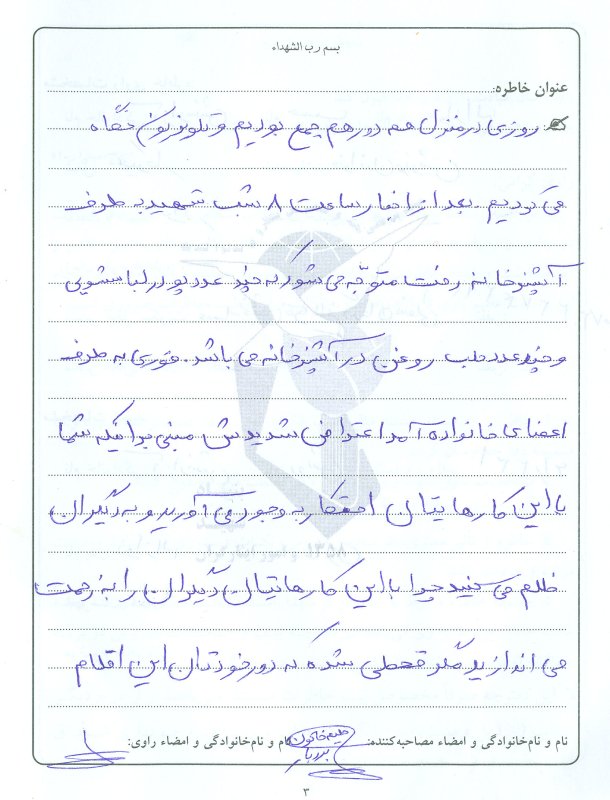 بسم رب الشهداء
عنوان خاطره:
روزی در منزل همه دور هم جمع بودیم و تلویزیون نگاه
می کردیم. بعد از اخبار ساعت ۸ شب شهید به طرف
آشپزخانه رفت متوجّه می شود که چند عدد پودر لباسشویی
و چند عدد حلب روغن در آشپزخانه می باشد. فوری به طرف
اعضای خانواده آمد اعتراض شدیدش مبنی بر اینکه شما
با این کارهایتان احتکار به وجود می آورید و به دیگران
ظلم می کنید چرا با این کارهایتان دیگران را به زحمت
می اندازید مگر قحطی شده که دور خودتان این اقلام
نام و نام‌خانوادگی و امضاء مصاحبه‌کننده: نام و نام‌خانوادگی و امضاء راوی:
۳